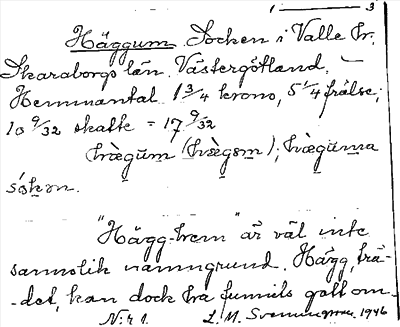 1 — 3
Häggum Socken i Valle hr.
Skaraborgs län. Västergötland. —
Hemmantal 1 3/4 krono, 5 1/4 frälse;
10 9/32 skatte = 17 9/32
"Hägg-hem" är väl inte
sannolik namngrund. Hägg, trä-
-det, kan dock ha funnits gott om.
N:r 1. L. M. Svenungsson 1946